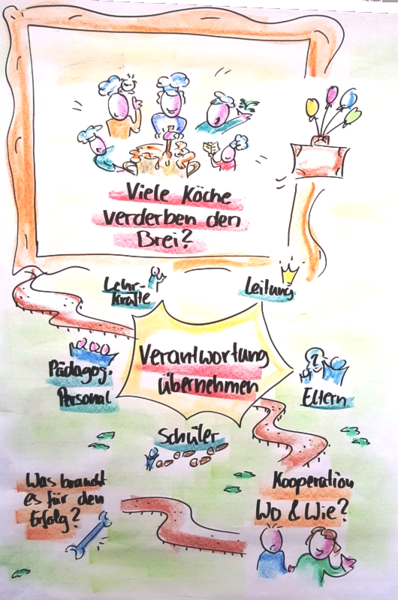 Viele Köche
verderben den
Brei?
Lehr-
kräfte
Leitung
Verantwortung
übernehmen
Pädagog.
Personal
Eltern
Schüler
Was braucht
es für den
Erfolg?
Kooperation
Wo & Wie?